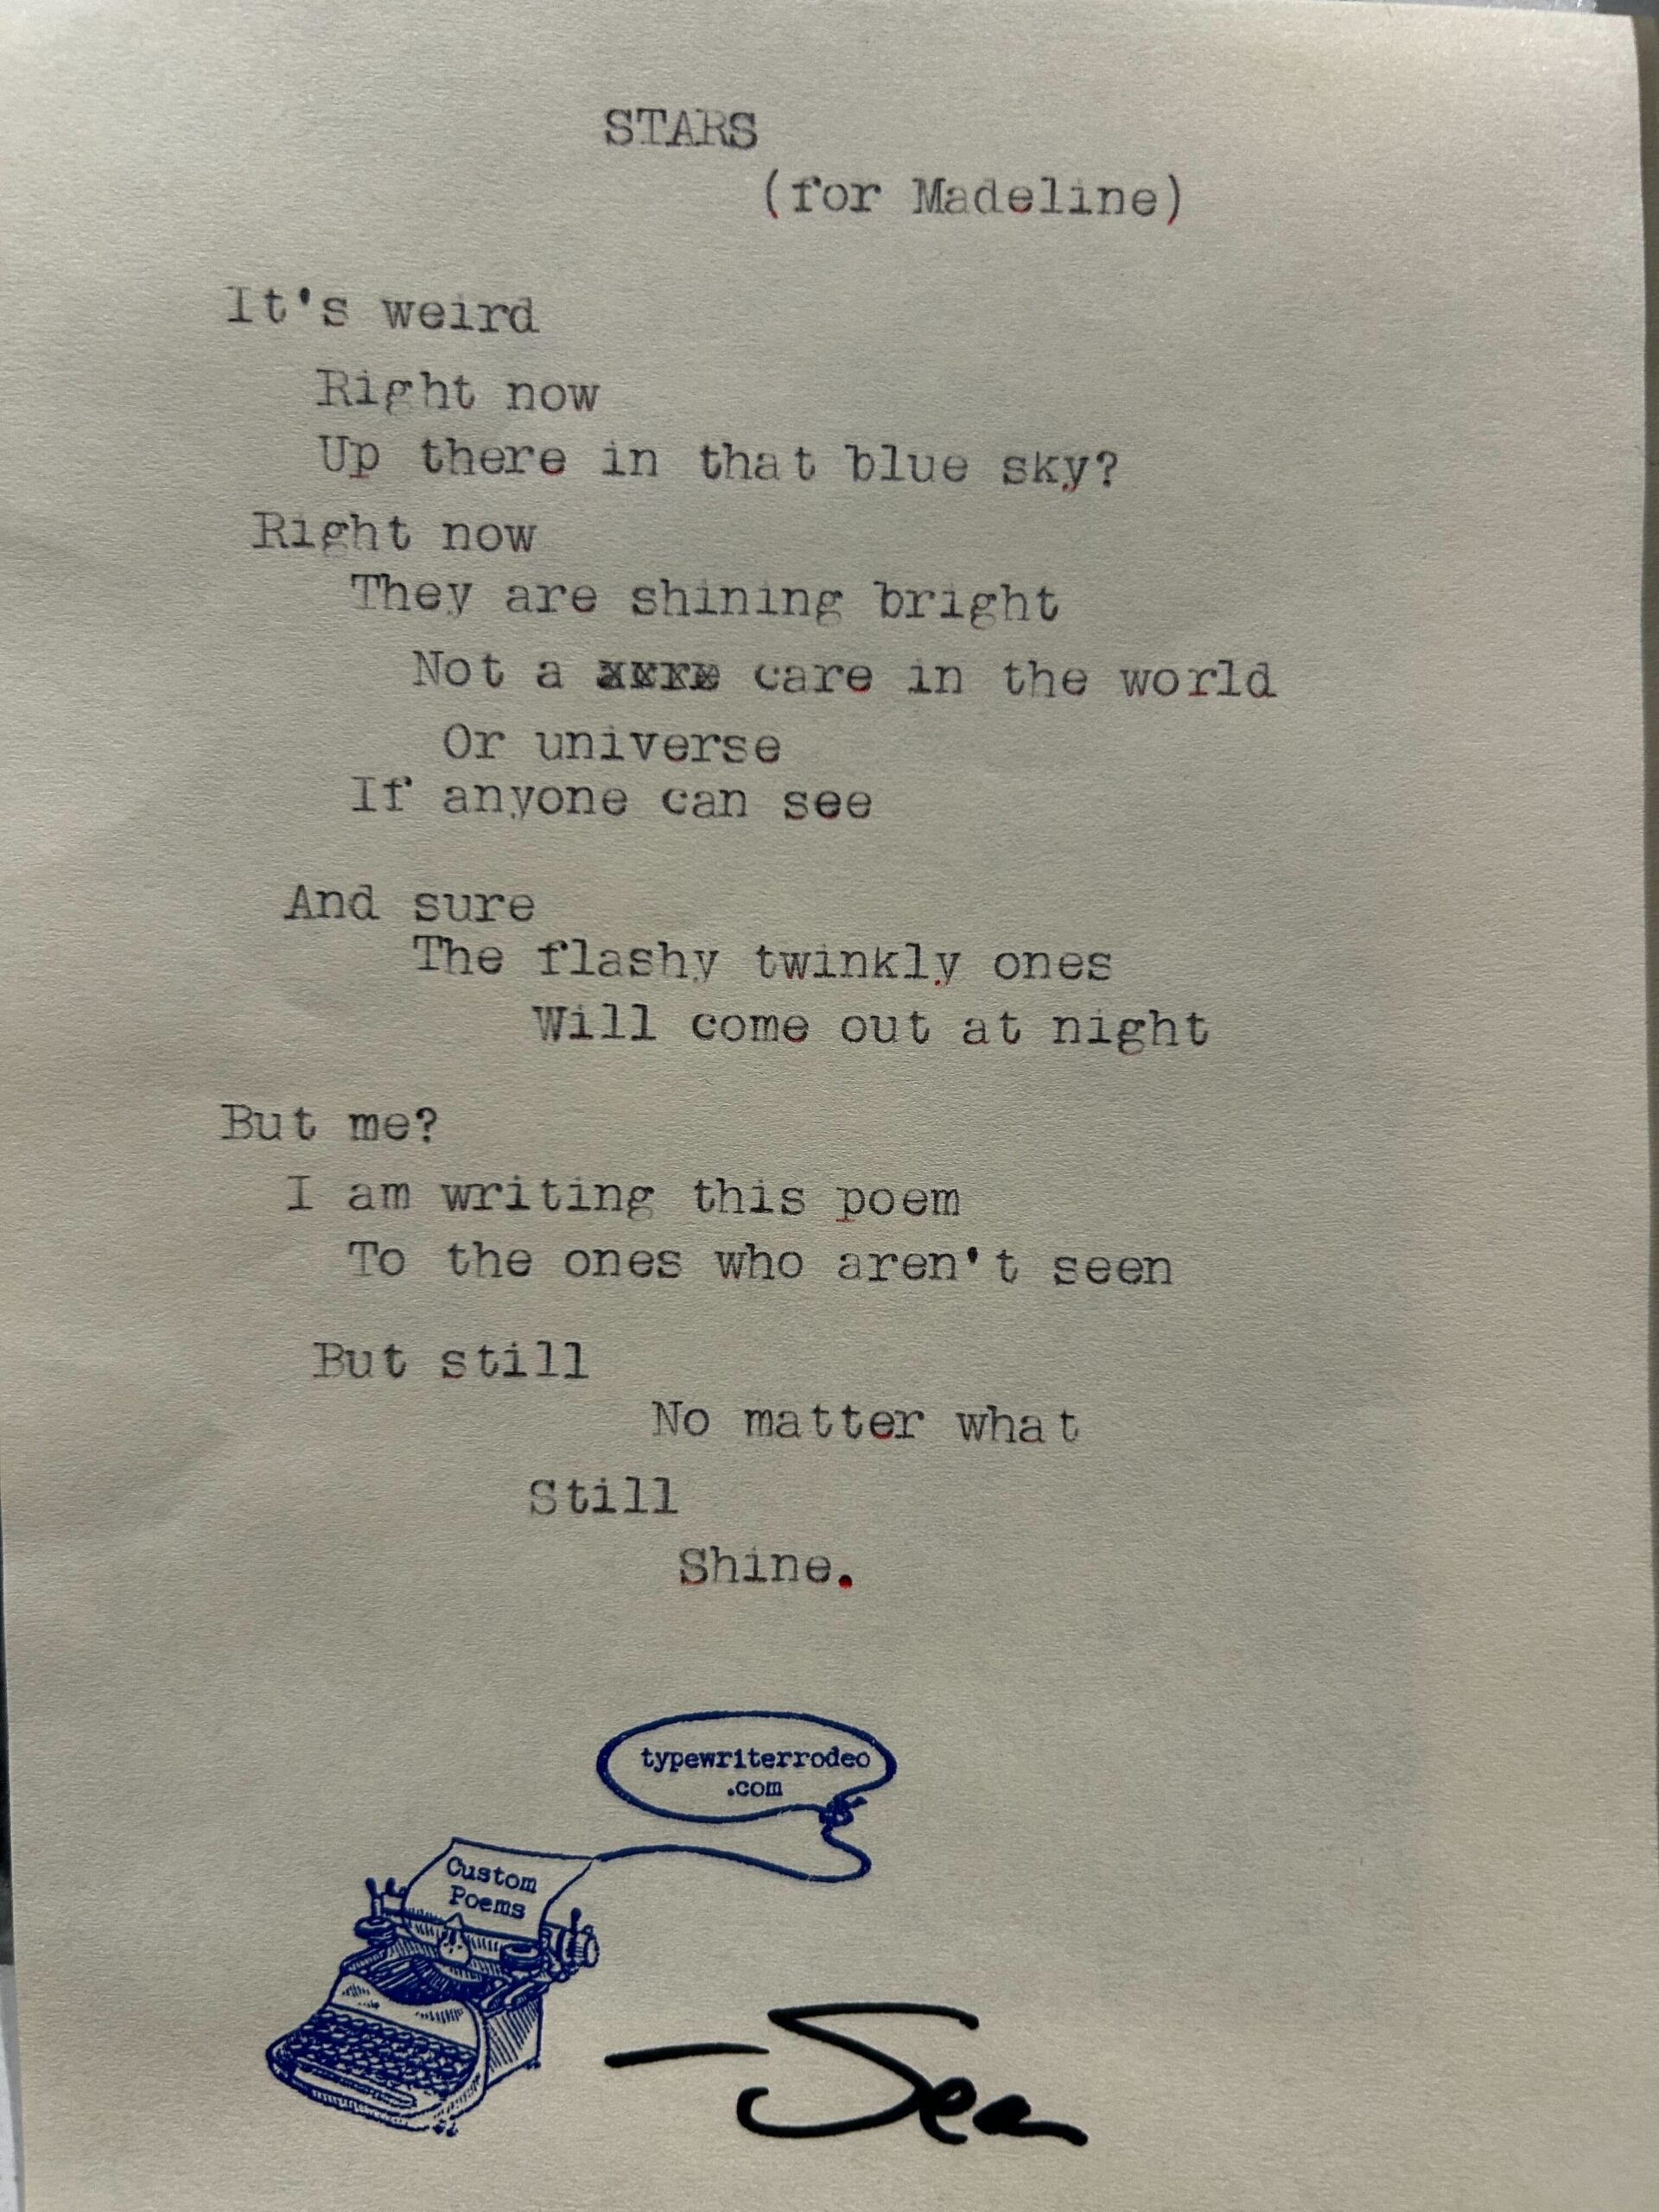 STARS
(for Madeline)
It's weird
Right now
Up there in that blue sky?
Right now
They are shining bright
Not a care in the world
Or universe
If anyone can see
And sure
The flashy twinkly ones
Will come out at night
But me?
I am writing this poem
To the ones who aren't seen
But still
No matter what
Still
Shine.
typewriterrodeo
.com
Custom
Poems
-Sean